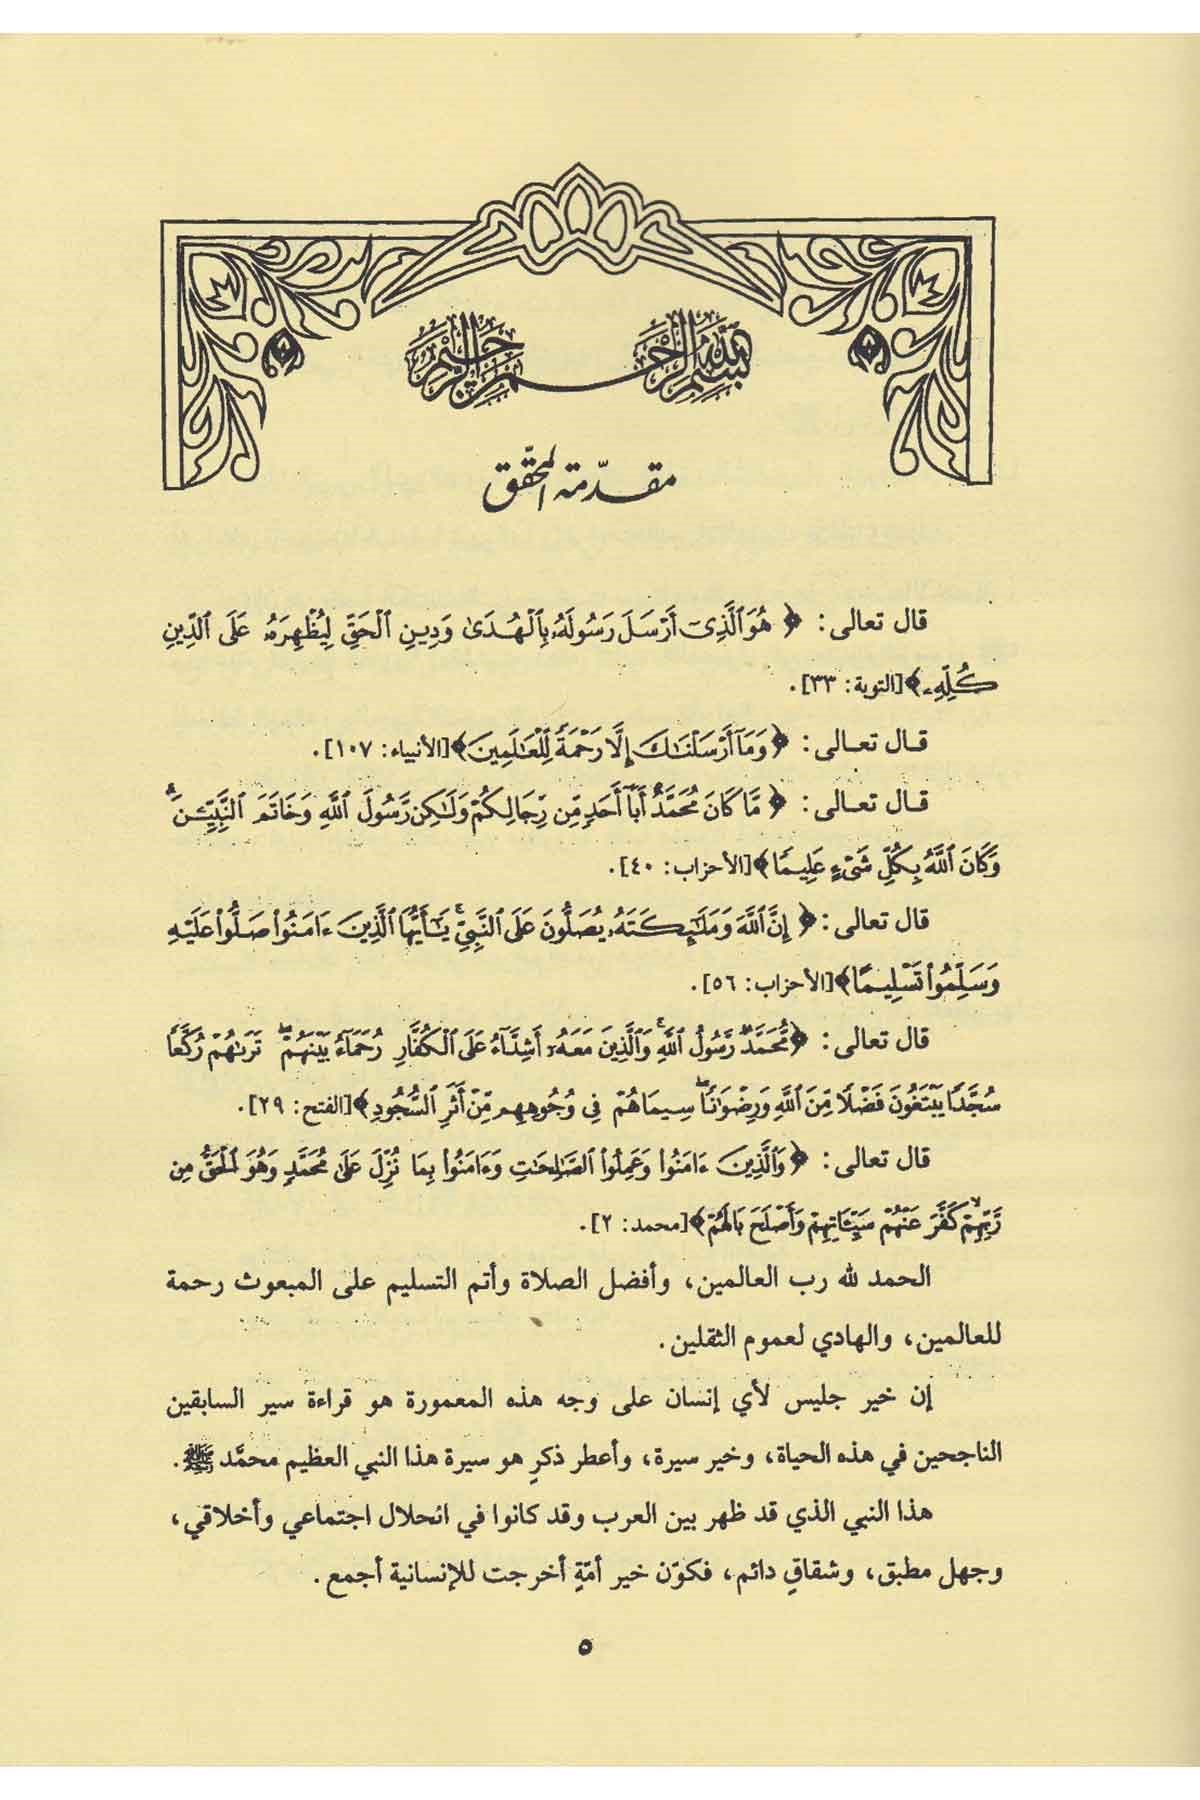 بسم الله الرحمن الرحيم
مقدّمة المحقّق
قال تعالى: ﴿هُوَ ٱلَّذِىٓ أَرْسَلَ رَسُولَهُۥ بِٱلْهُدَىٰ وَدِينِ ٱلْحَقِّ لِيُظْهِرَهُۥ عَلَى ٱلدِّينِ
كُلِّهِۦ﴾ [التوبة: ٣٣].
قال تعالى: ﴿وَمَآ أَرْسَلْنَٰكَ إِلَّا رَحْمَةً لِّلْعَٰلَمِينَ﴾ [الأنبياء: ١٠٧].
قال تعالى: ﴿مَّا كَانَ مُحَمَّدٌ أَبَآ أَحَدٍ مِّن رِّجَالِكُمْ وَلَٰكِن رَّسُولَ ٱللَّهِ وَخَاتَمَ ٱلنَّبِيِّۦنَ ۗ
وَكَانَ ٱللَّهُ بِكُلِّ شَىْءٍ عَلِيمًا﴾ [الأحزاب: ٤٠].
قال تعالى: ﴿إِنَّ ٱللَّهَ وَمَلَٰٓئِكَتَهُۥ يُصَلُّونَ عَلَى ٱلنَّبِىِّ ۚ يَٰٓأَيُّهَا ٱلَّذِينَ ءَامَنُوا۟ صَلُّوا۟ عَلَيْهِ
وَسَلِّمُوا۟ تَسْلِيمًا﴾ [الأحزاب: ٥٦].
قال تعالى: ﴿مُّحَمَّدٌ رَّسُولُ ٱللَّهِ ۚ وَٱلَّذِينَ مَعَهُۥٓ أَشِدَّآءُ عَلَى ٱلْكُفَّارِ رُحَمَآءُ بَيْنَهُمْ ۖ تَرَىٰهُمْ رُكَّعًا
سُجَّدًا يَبْتَغُونَ فَضْلًا مِّنَ ٱللَّهِ وَرِضْوَٰنًا ۖ سِيمَاهُمْ فِى وُجُوهِهِم مِّنْ أَثَرِ ٱلسُّجُودِ﴾ [الفتح: ٢٩].
قال تعالى: ﴿وَٱلَّذِينَ ءَامَنُوا۟ وَعَمِلُوا۟ ٱلصَّٰلِحَٰتِ وَءَامَنُوا۟ بِمَا نُزِّلَ عَلَىٰ مُحَمَّدٍ وَهُوَ ٱلْحَقُّ مِن
رَّبِّهِمْ ۙ كَفَّرَ عَنْهُمْ سَيِّـَٔاتِهِمْ وَأَصْلَحَ بَالَهُمْ﴾ [محمد: ٢].
الحمد لله رب العالمين، وأفضل الصلاة وأتم التسليم على المبعوث رحمة
للعالمين، والهادي لعموم الثقلين.
إن خير جليس لأي إنسان على وجه هذه المعمورة هو قراءة سير السابقين
الناجحين في هذه الحياة، وخير سيرة، وأعطر ذكرٍ هو سيرة هذا النبي العظيم محمَّد ﷺ.
هذا النبي الذي قد ظهر بين العرب وقد كانوا في انحلال اجتماعي وأخلاقي،
وجهل مطبق، وشقاقٍ دائم، فكوّن خير أمّةٍ أخرجت للإنسانية أجمع.
٥